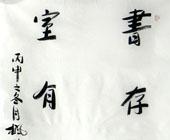 書存
室有
丙申之冬月